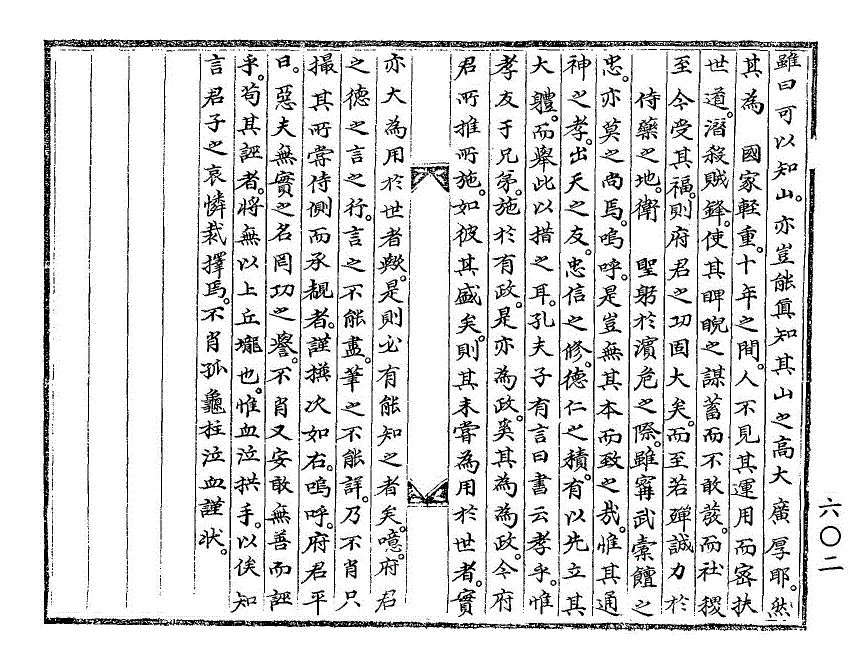 雖曰可以知山。亦豈能眞知其山之高大廣厚耶。然
其爲　國家輕重。十年之間。人不見其運用而密扶
世道。潛殺賊鋒。使其睥睨之謀蓄而不敢發。而社稷
至今受其福。則府君之功固大矣。而至若殫誠力於
侍藥之地。衛　聖躬於濱危之際。雖甯武橐饘之
忠。亦莫之尙焉。嗚呼。是豈無其本而致之哉。惟其通
神之孝。出天之友。忠信之修。德仁之積。有以先立其
大體。而擧此以措之耳。孔夫子有言曰書云孝乎。惟
孝友于兄弟。施於有政。是亦爲政。奚其爲爲政。今府
君所推所施。如彼其盛矣。則其未嘗爲用於世者。實
亦大爲用於世者歟。是則必有能知之者矣。噫。府君
之德之言之行。言之不能盡。筆之不能詳。乃不肖只
撮其所嘗侍側而承覩者。謹撰次如右。嗚呼。府君平
日。惡夫無實之名罔功之譽。不肖又安敢無善而誣
乎。苟其誣者。將無以上丘壠也。惟血泣拱手。以俟知
言君子之哀憐裁擇焉。不肖孤龜柱泣血謹狀。
六〇二